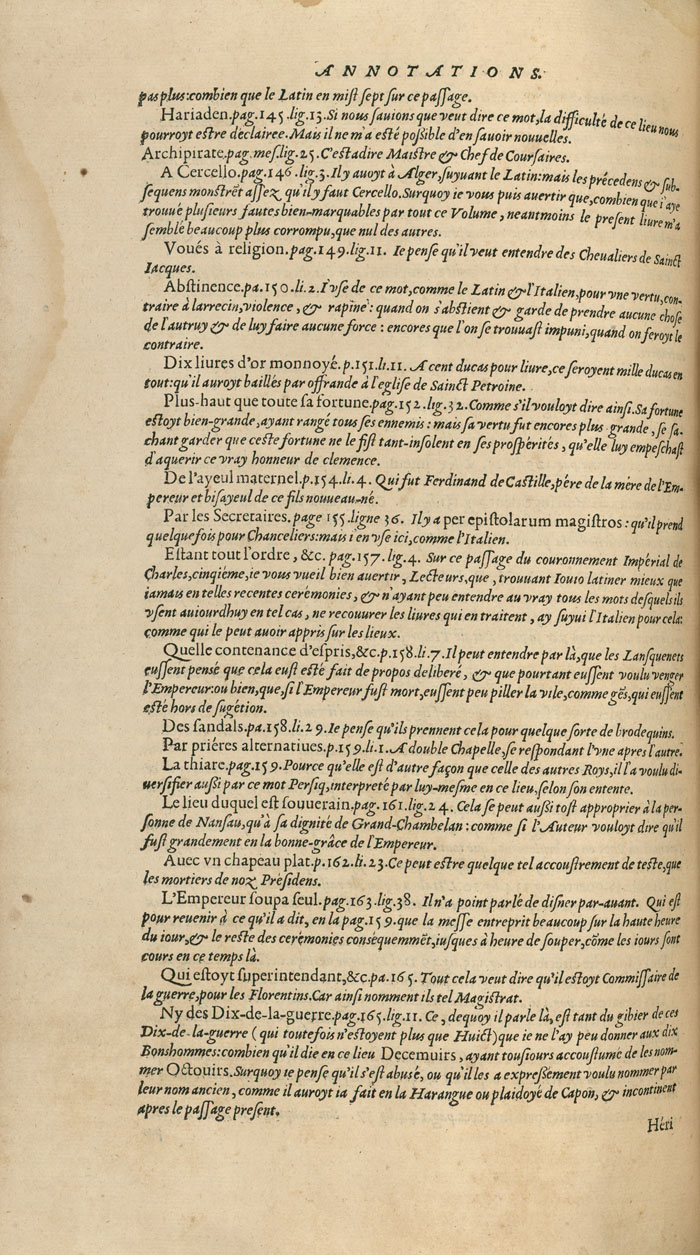 ANNOTATIONS.
pas plus:combien que le Latin en mist sept sur ce passage.
Hariaden.pag.145.lig.13.Si nous sauions que veut dire ce mot,la difficulté de ce lieu nous
pourroyt estre déclairee.Mais il ne m'a esté possible d'en sauoir nouuelles.
Archipirate.pag.mes.lig.25.C'estadire Maistre & Chef de Coursaires.
A Cercello.pag.146.lig.3.Il y auoyt à Alger,suyuant le Latin:mais les précedens & sub-
sequens monstrẽt assez qu'il y faut Cercello.Surquoy ie vous puis auertir que,combien que i'aye
trouué plusieurs fautes bien-marquables par tout ce Volume, neantmoins le present liure m'a
semblé beaucoup plus corrompu,que nul des autres.
Voués à religion.pag.149.lig.11. Ie pense qu'il veut entendre des Cheualiers de Sainct
Iacques.
Abstinence.pa.150.li.2.I'vse de ce mot,comme le Latin & l'Italien,pour vne vertu,con-
traire à larrecin,violence, & rapine: quand on s'abstient & garde de prendre aucune chose
de l'autruy & de luy faire aucune force : encores que l'on se trouuast impuni,quand on feroyt le
contraire.
Dix liures d'or monnoyé.p.151.li.11. A cent ducas pour liure,ce seroyent mille ducas en
tout:qu'il auroyt baillés par offrande à l'eglise de Sainct Petroine.
Plus-haut que toute sa fortune.pag.152.lig.32.Comme s'il vouloyt dire ainsi.Sa fortune
estoyt bien-grande,ayant rangé tous ses ennemis : mais sa vertu fut encores plus grande, se sa-
chant garder que ceste fortune ne le fist tant-insolent en ses prospérités, qu'elle luy empeschast
d'aquerir ce vray honneur de clemence.
De l'ayeul maternel.p.154.li.4. Qui fut Ferdinand de Castille,pére de la mére de l'Em-
pereur et bisayeul de ce fils nouueau-né.
Par les Secretaires.page 155.ligne 36. Il y a per epistolarum magistros : qu'il prend
quelquefois pour Chanceliers:mais i'en vse ici,comme l'Italien.
Estant tout l'ordre, &c. pag.157.lig.4. Sur ce passage du couronnement Impérial de
Charles,cinqième,ie vous vueil bien auertir, Lecteurs,que, trouuant Iouio latiner mieux que
iamais en telles recentes cerémonies, & n'ayant peu entendre au vray tous les mots desquels ils
vsent auiourdhuy en tel cas, ne recouurer les liures qui en traitent, ay suyui l'Italien pour cela:
comme qui le peut auoir appris sur les lieux.
Quelle contenance d'espris,&c.p.158.li.7.Il peut entendre par là,que les Lansquenets
eussent pensé que cela eust esté fait de propos deliberé, & que pourtant eussent voulu venger
l'Empereur:ou bien,que,si l'Empereur fust mort,eussent peu piller la vile,comme gẽs,qui eussent
esté hors de sugétion.
Des sandals.pa.158.li.29.Ie pense qu'ils prennent cela pour quelque sorte de brodequins.
Par priéres alternatiues.p.159.li.1.A double Chapelle,se respondant l'vne apres l'autre.
La thiare.pag.159.Pource qu'elle est d'autre façon que celle des autres Roys,il l'a voulu di-
uersifier aussi par ce mot Persiq,interpreté par luy-mesme en ce lieu,selon son entente.
Le lieu duquel est souuerain.pag.161.lig.24. Cela se peut aussi tost approprier à la per-
sonne de Nansau,qu'à sa dignité de Grand-Chambelan : comme si l'Auteur vouloyt dire qu'il
fust grandement en la bonne-grâce de l'Empereur.
Auec vn chapeau plat.p.162.li.23.Ce peut estre quelque tel accoustrement de teste,que
les mortiers de noz Présidens.
L'Empereur soupa seul.pag.163.lig.38. Il n'a point parlé de disner par-auant. Qui est
pour reuenir à ce qu'il a dit, en la pag.159.que la messe entreprit beaucoup sur la haute heure
du iour,& le reste des cerémonies conséquemmẽt,iusques à heure de souper,cõme les iours sont
cours en ce temps là.
Qui estoyt superintendant,&c.pa.165.Tout cela veut dire qu'il estoyt Commissaire de
la guerre,pour les Florentins.Car ainsi nomment ils tel Magistrat.
Ny des Dix-de-la-guerre.pag.165.lig.11. Ce, dequoy il parle là, est tant du gibier de ces
Dix-de-la-guerre ( qui toutefois n'estoyent plus que Huict)que ie ne l'ay peu donner aux dix
Bonshommes:combien qu'il die en ce lieu Decemuirs, ayant tousiours accoustumé de les nom-
mer Octouirs.Surquoy ie pense qu'il s'est abusé, ou qu'il les a expressément voulu nommer par
leur nom ancien, comme il auroyt ia fait en la Harangue ou plaidoyé de Capon, & incontinent
apres le passage present.
Héri